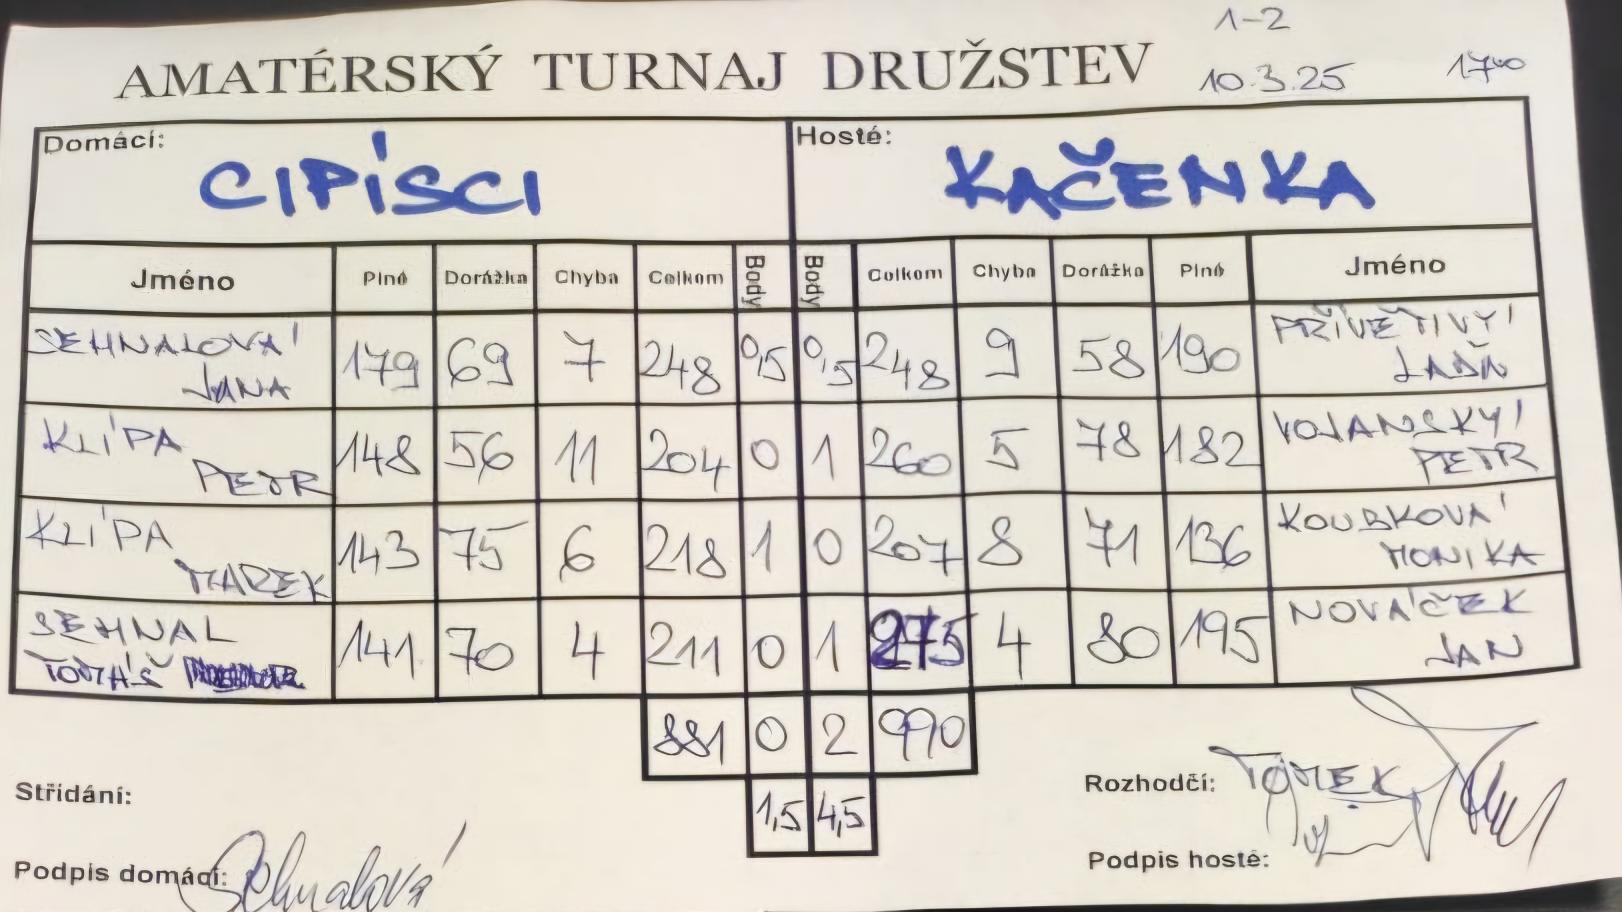 1-2
AMATÉRSKÝ TURNAJ DRUŽSTEV 10.3.25 17⁰⁰
Domácí: Hosté:
CIPÍSCI KAČENKA
Jméno Plné Dorážka Chyba Celkem Body Body Celkem Chyba Dorážka Plné Jméno
SEHNALOVÁ PŘÍVĚTIVÝ
JANA 179 69 7 248 0,5 0,5 248 9 58 190 LAĎA
KLÍPA VOJANSKÝ
PETR 148 56 11 204 0 1 260 5 78 182 PETR
KLÍPA KOUBKOVÁ
MAREK 143 75 6 218 1 0 207 8 71 136 MONIKA
SEHNAL NOVÁČEK
TOMÁŠ 141 70 4 211 0 1 275 4 80 195 JAN
881 0 2 990
1,5 4,5
Střídání: Rozhodčí: TOMEK
Podpis domácí: Sehnalová Podpis hosté: